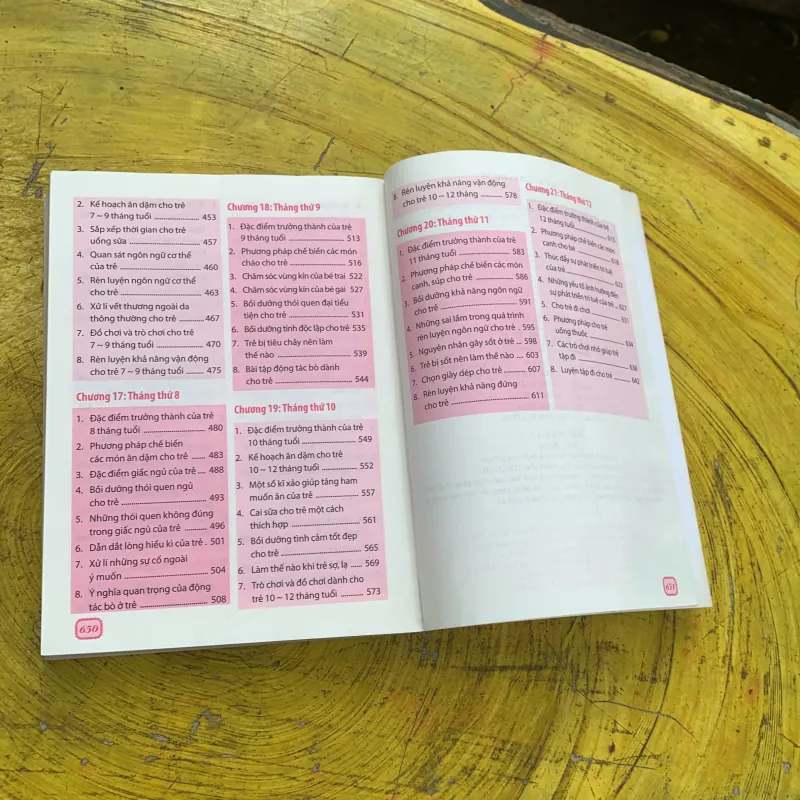 2. Kế hoạch ăn dặm cho trẻ
7 ~ 9 tháng tuổi ........................ 453
3. Sắp xếp thời gian cho trẻ
uống sữa ........................ 457
4. Quan sát ngôn ngữ cơ thể
của trẻ ........................ 460
5. Rèn luyện ngôn ngữ cơ thể
cho trẻ ........................ 463
6. Xử lí vết thương ngoài da
thông thường cho trẻ ............467
7. Đồ chơi và trò chơi cho trẻ
7 ~ 9 tháng tuổi ........................ 470
8. Rèn luyện khả năng vận động
cho trẻ 7 ~ 9 tháng tuổi ......... 475
Chương 17: Tháng thứ 8
1. Đặc điểm trưởng thành của trẻ
8 tháng tuổi ........................ 480
2. Phương pháp chế biến
các món ăn dặm cho trẻ ...... 483
3. Đặc điểm giấc ngủ của trẻ .... 488
4. Bồi dưỡng thói quen ngủ
cho trẻ ........................ 493
5. Những thói quen không đúng
trong giấc ngủ của trẻ .......... 496
6. Dẫn dắt lòng hiếu kì của trẻ . 501
7. Xử lí những sự cố ngoài
ý muốn ........................ 504
8. Ý nghĩa quan trọng của động
tác bò ở trẻ ........................ 508
Chương 18: Tháng thứ 9
1. Đặc điểm trưởng thành của trẻ
9 tháng tuổi ........................ 513
2. Phương pháp chế biến các món
cháo cho trẻ ........................ 516
3. Chăm sóc vùng kín của bé trai 522
4. Chăm sóc vùng kín của bé gái 527
5. Bồi dưỡng thói quen đại tiểu
tiện cho trẻ ........................ 531
6. Bồi dưỡng tính độc lập cho trẻ 535
7. Trẻ bị tiêu chảy nên làm
thế nào ........................ 539
8. Bài tập động tác bò dành
cho trẻ ........................ 544
Chương 19: Tháng thứ 10
1. Đặc điểm trưởng thành của trẻ
10 tháng tuổi ........................ 549
2. Kế hoạch ăn dặm cho trẻ
10 ~ 12 tháng tuổi ................ 552
3. Một số kĩ xảo giúp tăng ham
muốn ăn của trẻ ................ 557
4. Cai sữa cho trẻ một cách
thích hợp ........................ 561
5. Bồi dưỡng tình cảm tốt đẹp
cho trẻ ........................ 565
6. Làm thế nào khi trẻ sợ, lạ ...... 569
7. Trò chơi và đồ chơi dành cho
trẻ 10 ~ 12 tháng tuổi ........... 573
650
8. Rèn luyện khả năng vận động
cho trẻ 10 ~ 12 tháng ........... 578
Chương 20: Tháng thứ 11
1. Đặc điểm trưởng thành của trẻ
11 tháng tuổi ........................ 583
2. Phương pháp chế biến các món
canh, súp cho trẻ ................ 586
3. Bồi dưỡng khả năng ngôn ngữ
cho trẻ ........................ 591
4. Những sai lầm trong quá trình
rèn luyện ngôn ngữ cho trẻ . 595
5. Nguyên nhân gây sốt ở trẻ ... 598
6. Trẻ bị sốt nên làm thế nào ... 603
7. Chọn giày dép cho trẻ ......... 607
8. Rèn luyện khả năng đứng
cho trẻ ........................ 611
Chương 21: Tháng thứ 12
1. Đặc điểm trưởng thành của trẻ
12 tháng tuổi ................ 615
2. Phương pháp chế biến các món
canh cho bé ................ 618
3. Thúc đẩy sự phát triển trí tuệ
của trẻ ................ 622
4. Những yếu tố ảnh hưởng đến
sự phát triển trí tuệ của trẻ . 627
5. Cho trẻ đi chơi ................ 631
6. Phương pháp cho trẻ
uống thuốc ................ 634
7. Các trò chơi nhỏ giúp trẻ
tập đi ................ 638
8. Luyện tập đi cho trẻ ........... 642
651